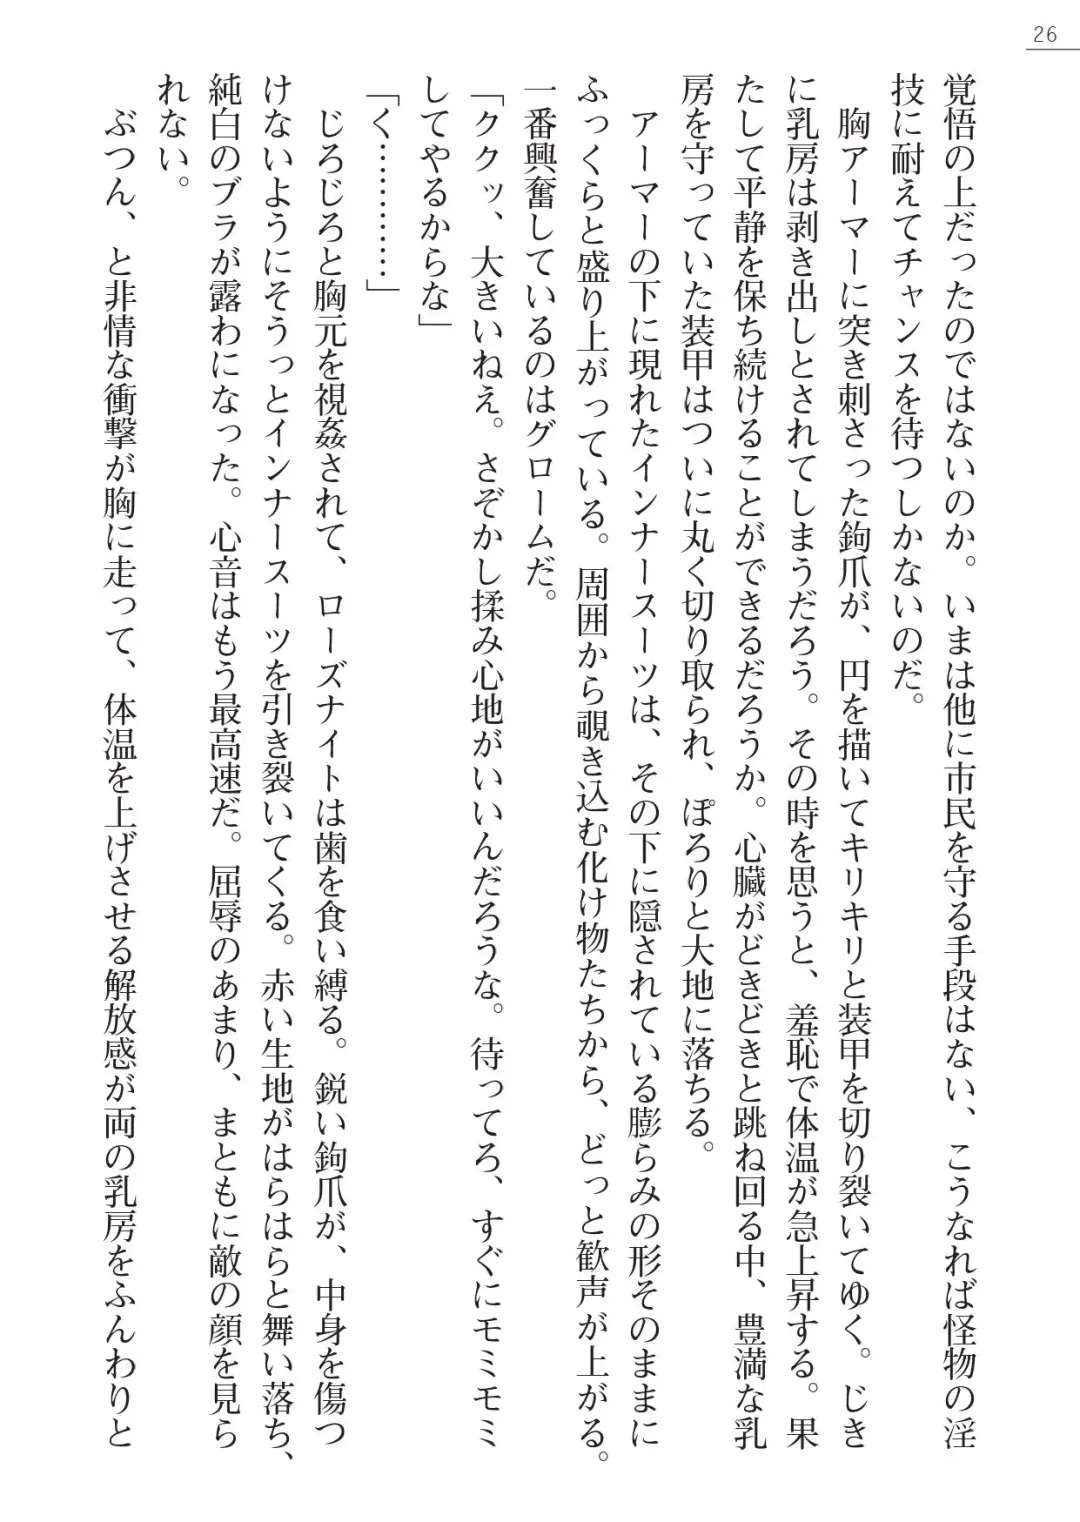 26
覚悟の上だったのではないのか。いまは他に市民を守る手段はない、こうなれば怪物の淫
技に耐えてチャンスを待つしかないのだ。
　胸アーマーに突き刺さった鉤爪が、円を描いてキリキリと装甲を切り裂いてゆく。じき
に乳房は剥き出しとされてしまうだろう。その時を思うと、羞恥で体温が急上昇する。果
たして平静を保ち続けることができるだろうか。心臓がどきどきと跳ね回る中、豊満な乳
房を守っていた装甲はついに丸く切り取られ、ぽろりと大地に落ちる。
　アーマーの下に現れたインナースーツは、その下に隠されている膨らみの形そのままに
ふっくらと盛り上がっている。周囲から覗き込む化け物たちから、どっと歓声が上がる。
一番興奮しているのはグロームだ。
「ククッ、大きいねえ。さぞかし揉み心地がいいんだろうな。待ってろ、すぐにモミモミ
してやるからな」
「く…………」
　じろじろと胸元を視姦されて、ローズナイトは歯を食い縛る。鋭い鉤爪が、中身を傷つ
けないようにそうっとインナースーツを引き裂いてくる。赤い生地がはらはらと舞い落ち、
純白のブラが露わになった。心音はもう最高速だ。屈辱のあまり、まともに敵の顔を見ら
れない。
　ぶつん、と非情な衝撃が胸に走って、体温を上げさせる解放感が両の乳房をふんわりと